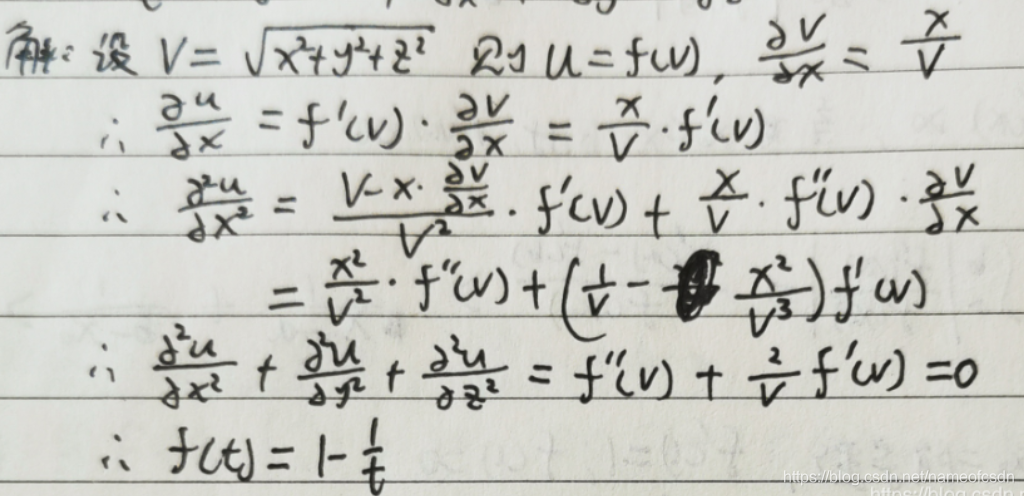 解：设 V = √(x²+y²+z²) 则 u = f(v), ∂V/∂x = x/V
∴ ∂u/∂x = f'(v) · ∂V/∂x = x/V · f'(v)
∴ ∂²u/∂x² = (V - x · ∂V/∂x)/V² · f'(v) + x/V · f''(v) · ∂V/∂x
= x²/V² · f''(v) + (1/V - x²/V³) f'(v)
∴ ∂²u/∂x² + ∂²u/∂y² + ∂²u/∂z² = f''(v) + 2/V f'(v) = 0
∴ f(t) = 1 - 1/t
https://blog.csdn.net/nameofcsdn
https://blog.csdn.net/nameofcsdn